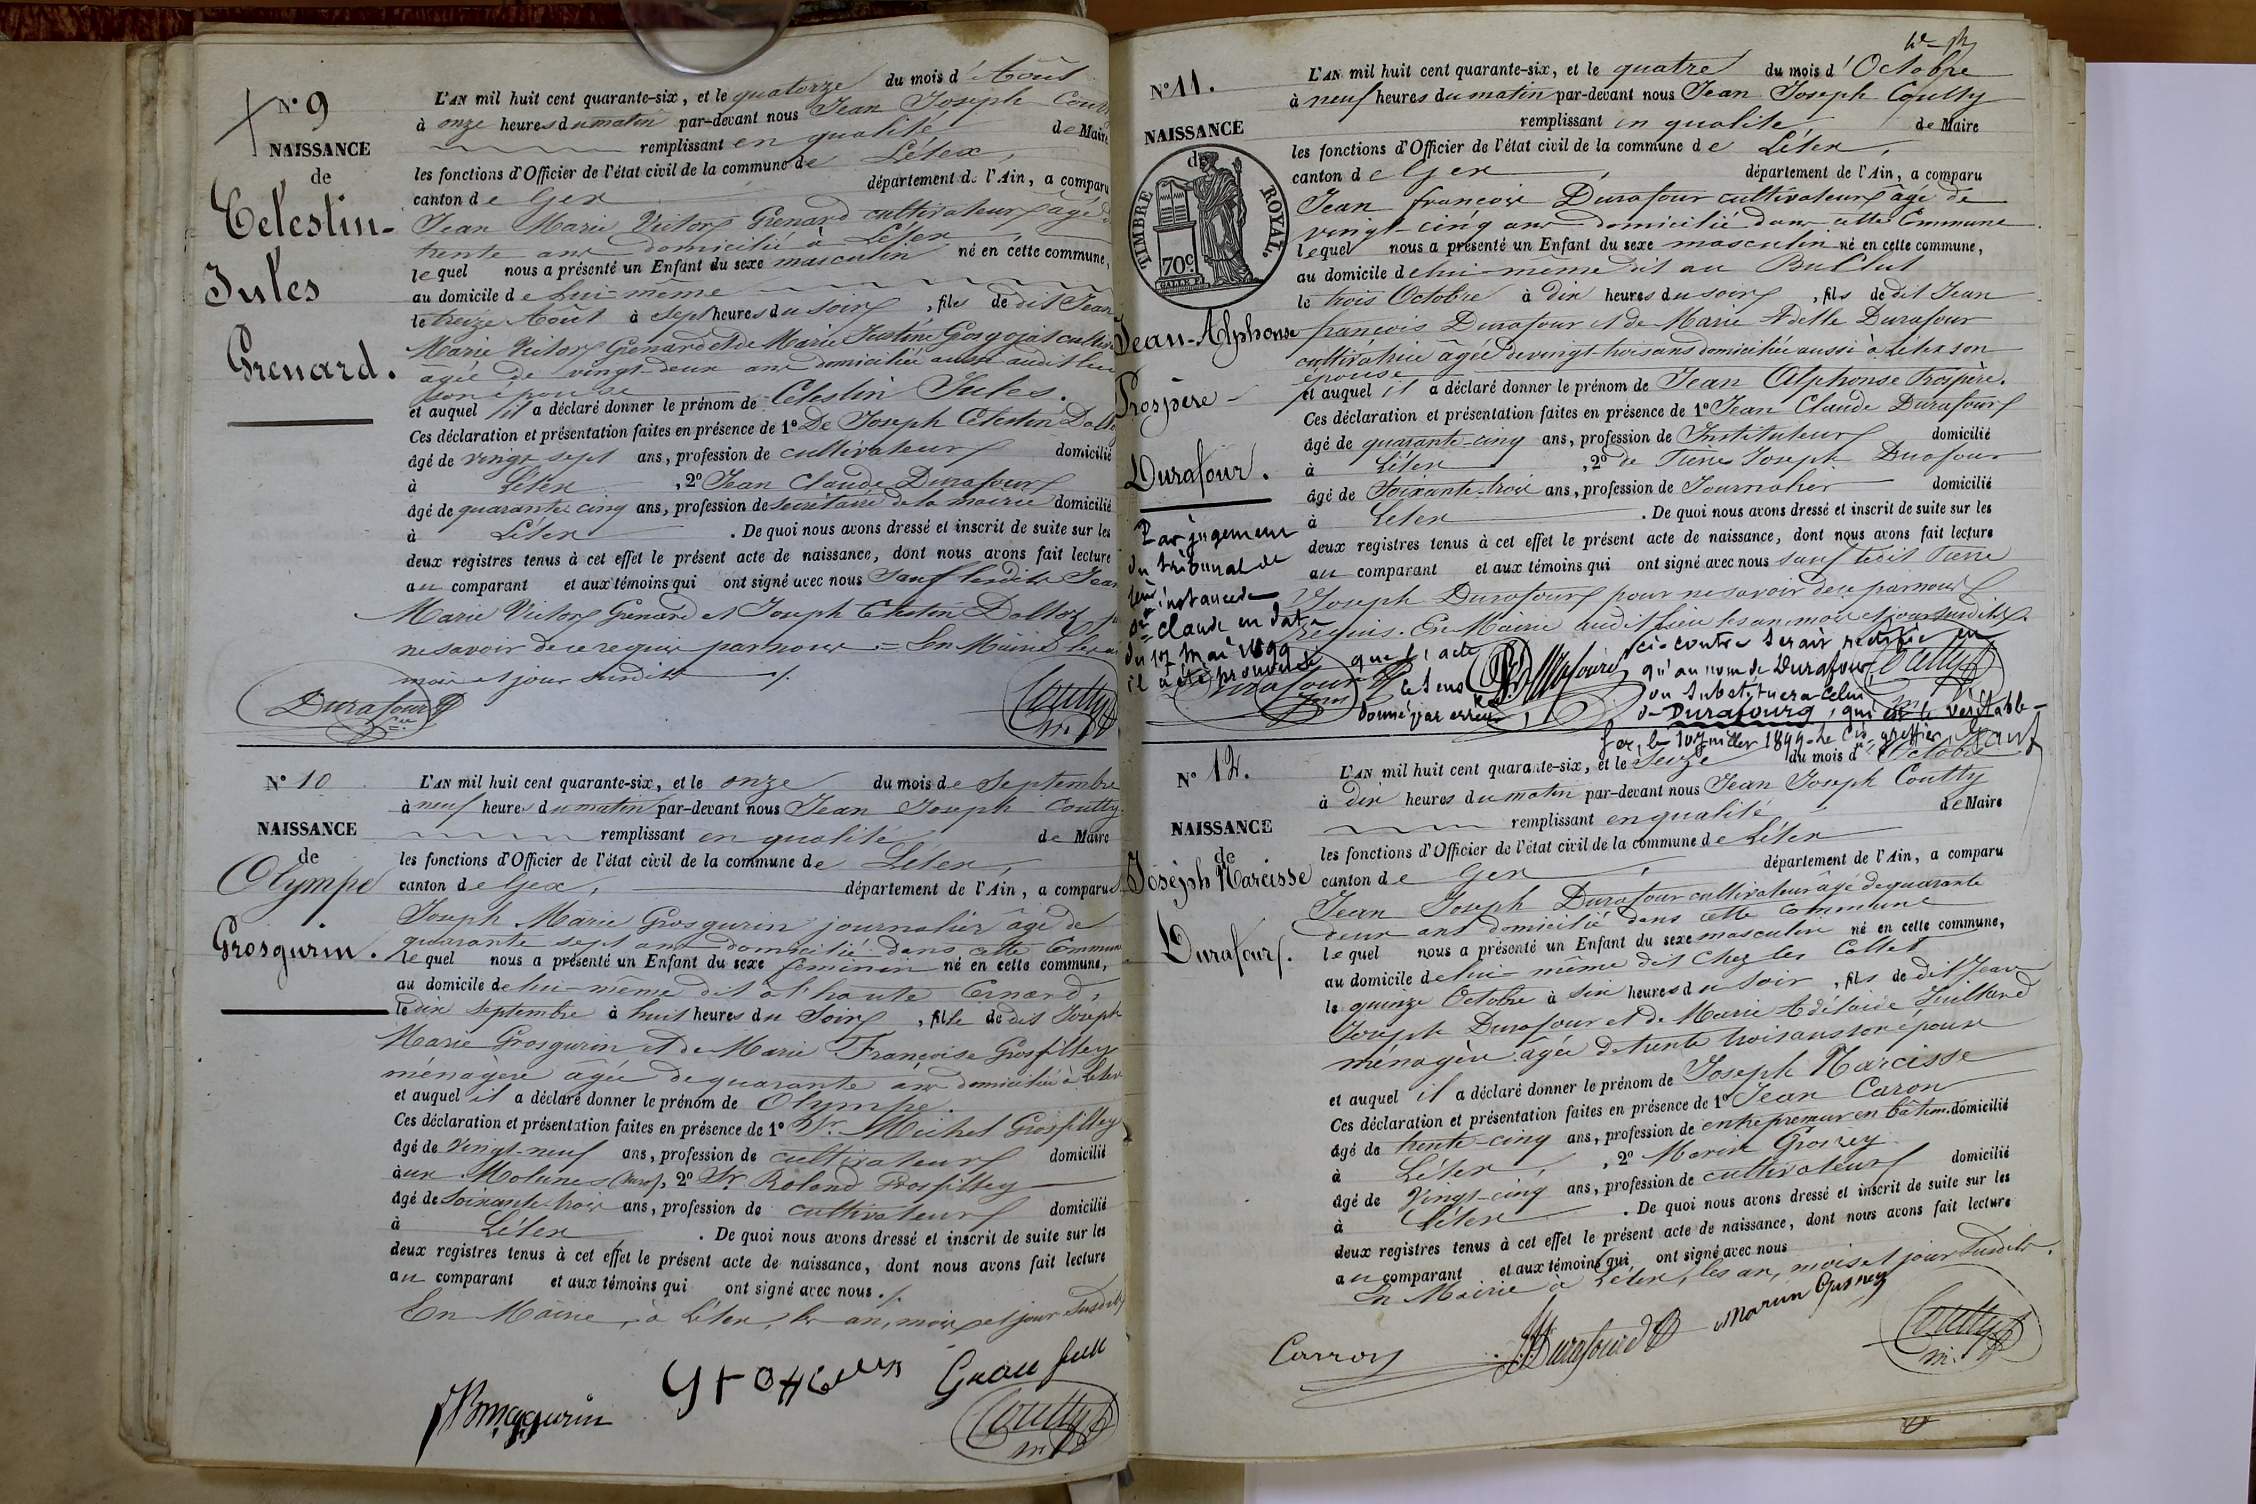 N° 9
NAISSANCE
de
Célestin-
Jules
Grenard.
L'AN mil huit cent quarante-six, et le quatorze du mois d'Août
à onze heures du matin par-devant nous Jean Joseph Coutty
remplissant en qualité de Maire
les fonctions d'Officier de l'état civil de la commune de Lélex,
canton de Gex département de l'Ain, a comparu
Jean Marie Victor Grenard cultivateur âgé de
trente ans domicilié à Lélex
lequel nous a présenté un Enfant du sexe masculin né en cette commune,
au domicile de lui-même
le treize Août à sept heures du soir, fils de dit Jean
Marie Victor Grenard et de Marie Justine Grosgojat
âgée de vingt-deux ans domiciliée aussi audit lieu
son épouse
et auquel il a déclaré donner le prénom de Célestin Jules.
Ces déclaration et présentation faites en présence de 1° De Joseph Célestin
âgé de vingt sept ans, profession de cultivateur domicilié
à Lélex, 2° Jean Claude Durafour
âgé de quarante cinq ans, profession de secrétaire de la mairie domicilié
à Lélex. De quoi nous avons dressé et inscrit de suite sur les
deux registres tenus à cet effet le présent acte de naissance, dont nous avons fait lecture
au comparant et aux témoins qui ont signé avec nous Sauf lesdits Jean
Marie Victor Grenard et Joseph Célestin
ne savoir de ce requis par nous = En Mairie les an
mois et jour susdits ./.
Durafour
Coutty
m.
N° 10
NAISSANCE
de
Olympe
Grosgurin.
L'AN mil huit cent quarante-six, et le onze du mois de Septembre
à neuf heures du matin par-devant nous Jean Joseph Coutty
remplissant en qualité de Maire
les fonctions d'Officier de l'état civil de la commune de Lélex,
canton de Gex, département de l'Ain, a comparu
Joseph Marie Grosgurin journalier âgé de
quarante sept ans domicilié dans cette Commune
lequel nous a présenté un Enfant du sexe féminin né en cette commune,
au domicile de lui-même dit à l'haute
le dix Septembre à huit heures du Soir, fille de dit Joseph
Marie Grosgurin et de Marie Françoise Grosfilley
ménagère agée de quarante ans domiciliée à Lélex
et auquel il a déclaré donner le prénom de Olympe.
Ces déclaration et présentation faites en présence de 1° Sr. Michel Grosfilley
âgé de vingt-neuf ans, profession de cultivateur domicilié
aux Molunes (Jura), 2° Sr. Roland Grosfilley
âgé de soixante trois ans, profession de cultivateur domicilié
à Lélex. De quoi nous avons dressé et inscrit de suite sur les
deux registres tenus à cet effet le présent acte de naissance, dont nous avons fait lecture
au comparant et aux témoins qui ont signé avec nous ./.
En Mairie, à Lélex, les an, mois et jour susdits
Coutty
m.
N° 11.
NAISSANCE
de
TIMBRE ROYAL.
70c.
Jean-Alphonse
Prospère-
Durafour.
L'AN mil huit cent quarante-six, et le quatre du mois d'Octobre
à neuf heures du matin par-devant nous Jean Joseph Coutty
remplissant en qualité de Maire
les fonctions d'Officier de l'état civil de la commune de Lélex,
canton de Gex, département de l'Ain, a comparu
Jean françois Durafour cultivateur âgé de
vingt-cinq ans domicilié dans cette Commune
lequel nous a présenté un Enfant du sexe masculin né en cette commune,
au domicile de lui-même dit au
le trois Octobre à dix heures du soir, fils de dit Jean
françois Durafour et de Marie Adelle Durafour
cultivatrice âgée de vingt-trois ans domiciliée aussi à Lélex son
épouse
et auquel il a déclaré donner le prénom de Jean Alphonse Prospère.
Ces déclaration et présentation faites en présence de 1° Jean Claude Durafour
âgé de quarante-cinq ans, profession de Instituteur domicilié
à Lélex, 2° de Pierre Joseph Durafour
âgé de soixante-trois ans, profession de Journalier domicilié
à Lélex. De quoi nous avons dressé et inscrit de suite sur les
deux registres tenus à cet effet le présent acte de naissance, dont nous avons fait lecture
au comparant et aux témoins qui ont signé avec nous sauf ledit Pierre
Joseph Durafour pour ne savoir de ce par nous
requis. En Mairie audit lieu les an, mois et jour susdits.
Par jugement
du tribunal de
1ère instance de
St Claude en date
du 17 Mai 1899
il a été prononcé que l'acte
ci-contre serait rectifié en
ce sens qu'au nom de Durafour
donné par erreur, on substituera celui
de Durafourg, qui est le véritable
Gex, le 10 Juillet 1899 - Le Cis greffier,
Coutty
N° 12.
NAISSANCE
de
Joseph Narcisse
Durafour.
L'AN mil huit cent quarante-six, et le Seize du mois d'Octobre
à dix heures du matin par-devant nous Jean Joseph Coutty
remplissant en qualité de Maire
les fonctions d'Officier de l'état civil de la commune de Lélex
canton de Gex, département de l'Ain, a comparu
Jean Joseph Durafour cultivateur âgé de quarante
deux ans domicilié dans cette commune
lequel nous a présenté un Enfant du sexe masculin né en cette commune,
au domicile de lui-même dit Chez les Collet
le quinze Octobre à six heures du soir, fils de dit Jean
Joseph Durafour et de Marie Adélaïde
ménagère âgée de trente trois ans son épouse
et auquel il a déclaré donner le prénom de Joseph Narcisse
Ces déclaration et présentation faites en présence de 1° Jean Caron
âgé de trente-cinq ans, profession de entrepreneur en bâtim. domicilié
à Lélex, 2° Marin Grosrey
âgé de vingt-cinq ans, profession de cultivateur domicilié
à Lélex. De quoi nous avons dressé et inscrit de suite sur les
deux registres tenus à cet effet le présent acte de naissance, dont nous avons fait lecture
au comparant et aux témoins qui ont signé avec nous
En Mairie à Lélex, les an, mois et jour susdits.
Carron
Durafour
Marin
Coutty
m.